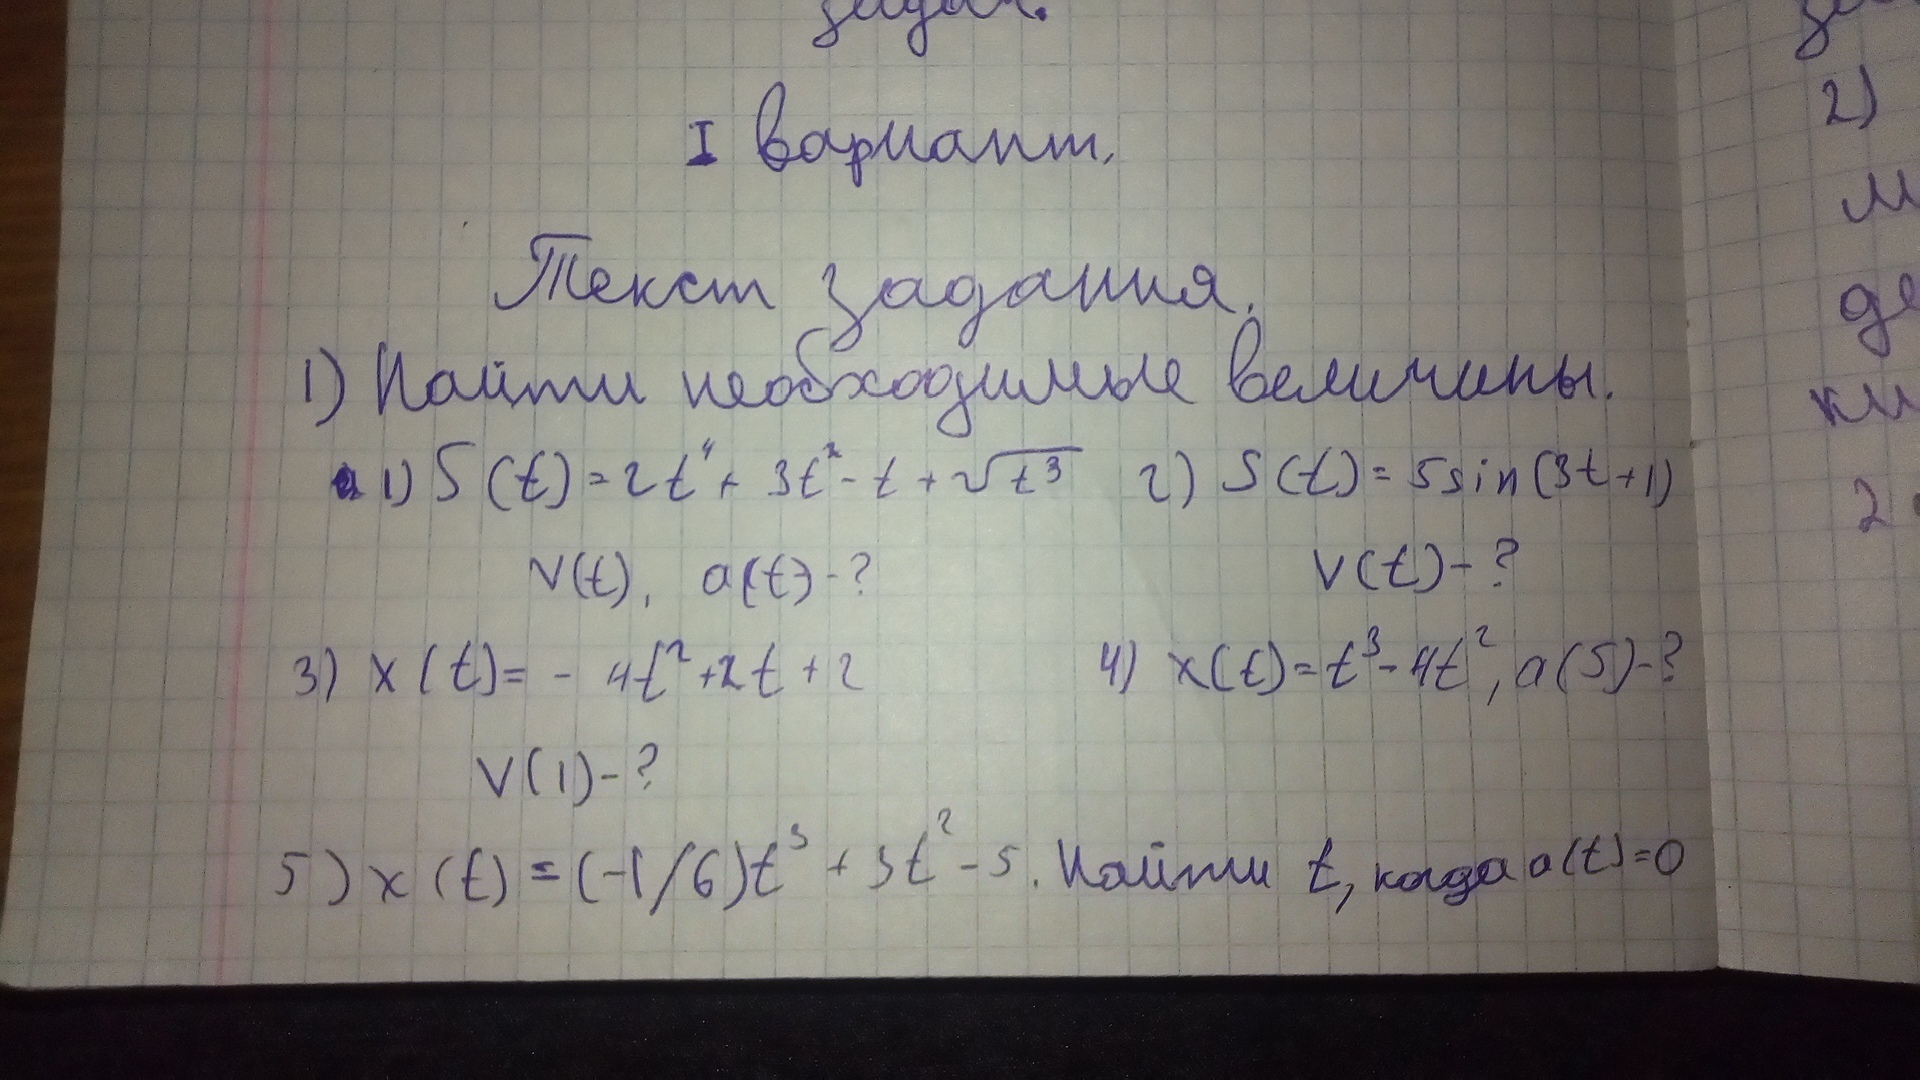 задач.
I вариант.
Текст задания.
1) Найти необходимые величины.
1) S(t)=2t⁴+3t²-t+√t³ 2) S(t)=5sin(3t+1)
v(t), a(t)-? v(t)-?
3) x(t)=-4t²+2t+2 4) x(t)=t³-4t², a(5)-?
v(1)-?
5) x(t)=(-1/6)t³+3t²-5. Найти t, когда a(t)=0
2)